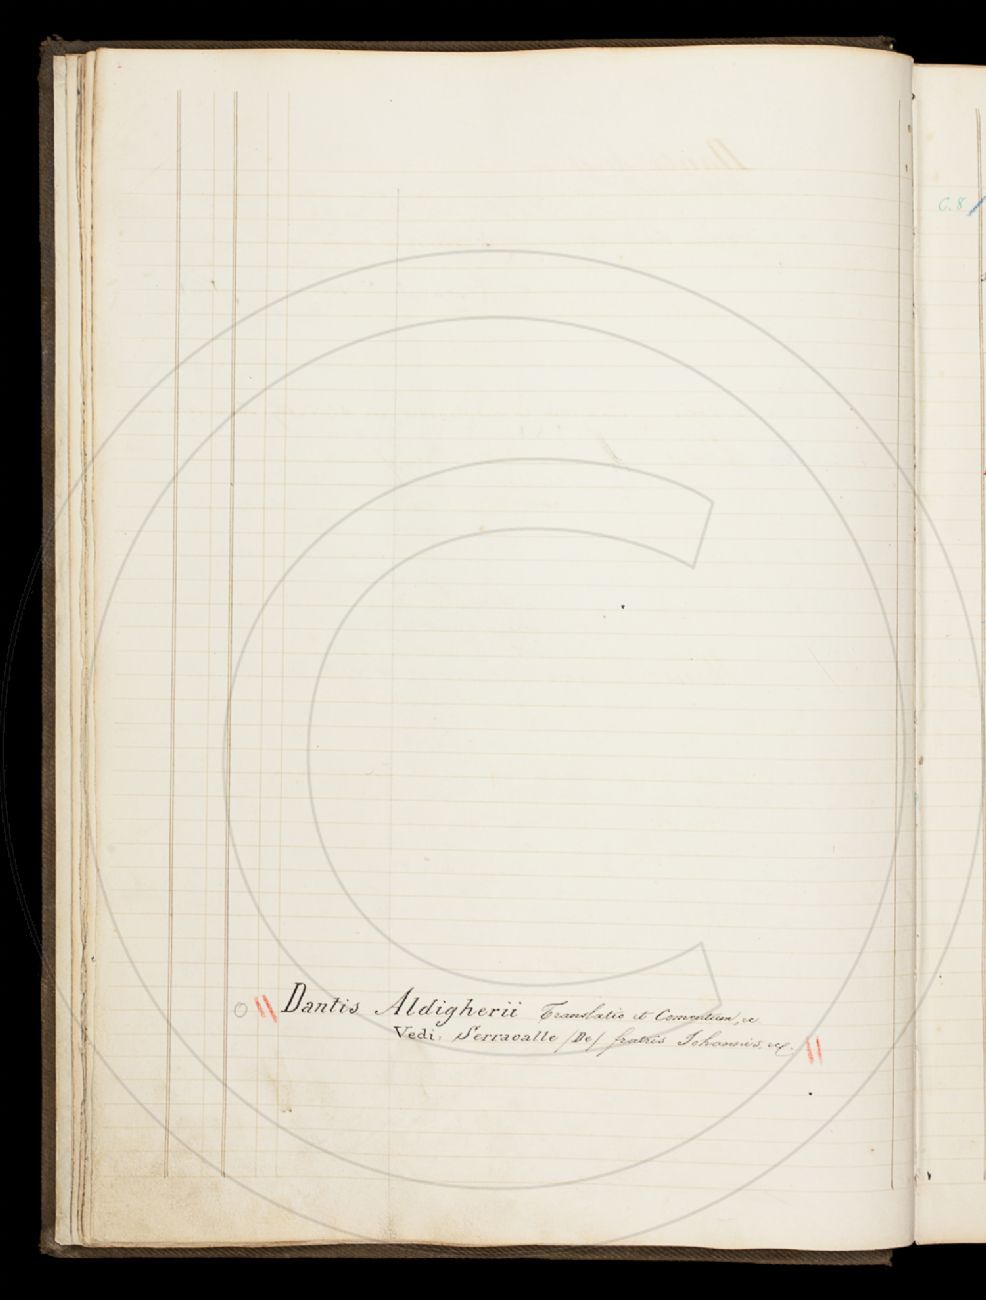 C. 8
Dantis Aldigherii Translatio et Comentum, &c
Vedi. Serravalle /De/ fratris Johannis, &c.